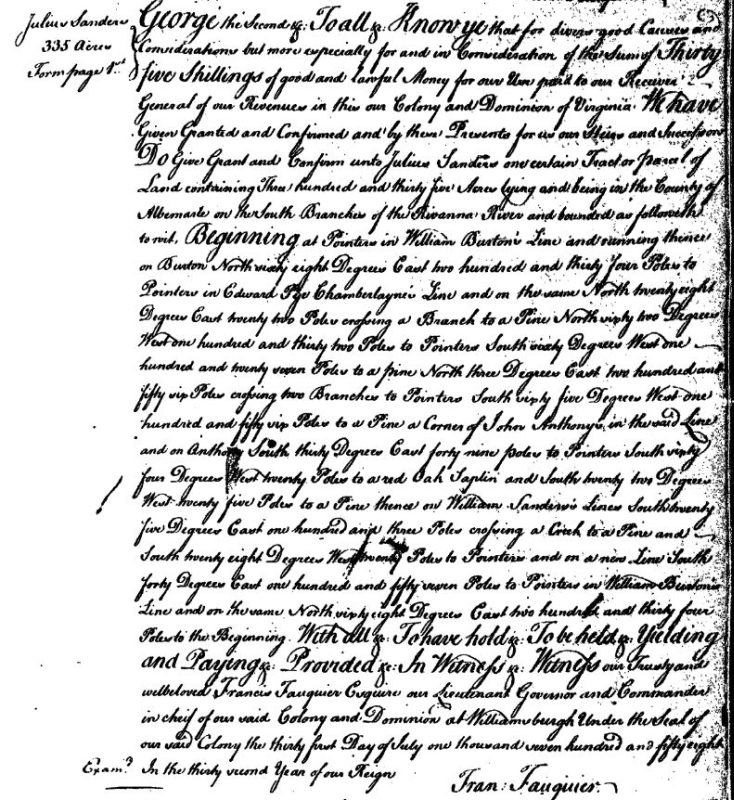 Julius Sanders
335 Acres
Form page 1st
George the Second &c. To all &c. Know ye that for divers good Causes and
Considerations but more especially for and in Consideration of the Sum of Thirty
five Shillings of good and lawful Money for our Use paid to our Receiver
General of our Revenues in this our Colony and Dominion of Virginia. We have
Given Granted and Confirmed and by these Presents for us our Heirs and Successors
Do Give Grant and Confirm unto Julius Sanders one certain Tract or parcel of
Land containing Three hundred and thirty five Acres lying and being in the County of
Albemarle on the South Branches of the Rivanna River and bounded as followeth
to wit, Beginning at Pointers in William Burton's Line and running thence
on Burton North sixty eight Degrees East two hundred and thirty four Poles to
Pointers in Edward Pye Chamberlayne's Line and on the same North twenty eight
Degrees East twenty two Poles crossing a Branch to a Pine North sixty two Degrees
West one hundred and thirty two Poles to Pointers South sixty Degrees West one
hundred and twenty seven Poles to a pine North three Degrees East two hundred and
fifty six Poles crossing two Branches to Pointers South sixty five Degrees West one
hundred and fifty six Poles to a Pine a Corner of John Anthony's in the said Line
and on Anthony South thirty Degrees East forty nine poles to Pointers South sixty
four Degrees West twenty Poles to a red Oak Saplin and South twenty two Degrees
West twenty five Poles to a Pine thence on William Sanders's Lines South twenty
five Degrees East one hundred and three Poles crossing a Creek to a Pine and
South twenty eight Degrees West twenty Poles to Pointers and on a new Line South
forty Degrees East one hundred and fifty seven Poles to Pointers in William Burton's
Line and on the same North sixty eight Degrees East two hundred and thirty four
Poles to the Beginning. With all &c. To have hold &c. To be held &c. Yielding
and Paying &c. Provided &c. In Witness &c. Witness our Trusty and
welbeloved Francis Fauquier Esquire our Lieutenant Governor and Commander
in cheif of our said Colony and Dominion at Williamsburgh Under the Seal of
our said Colony the thirty first Day of July one thousand seven hundred and fifty eight
Exam'd In the thirty second Year of our Reign
Fran: Fauquier